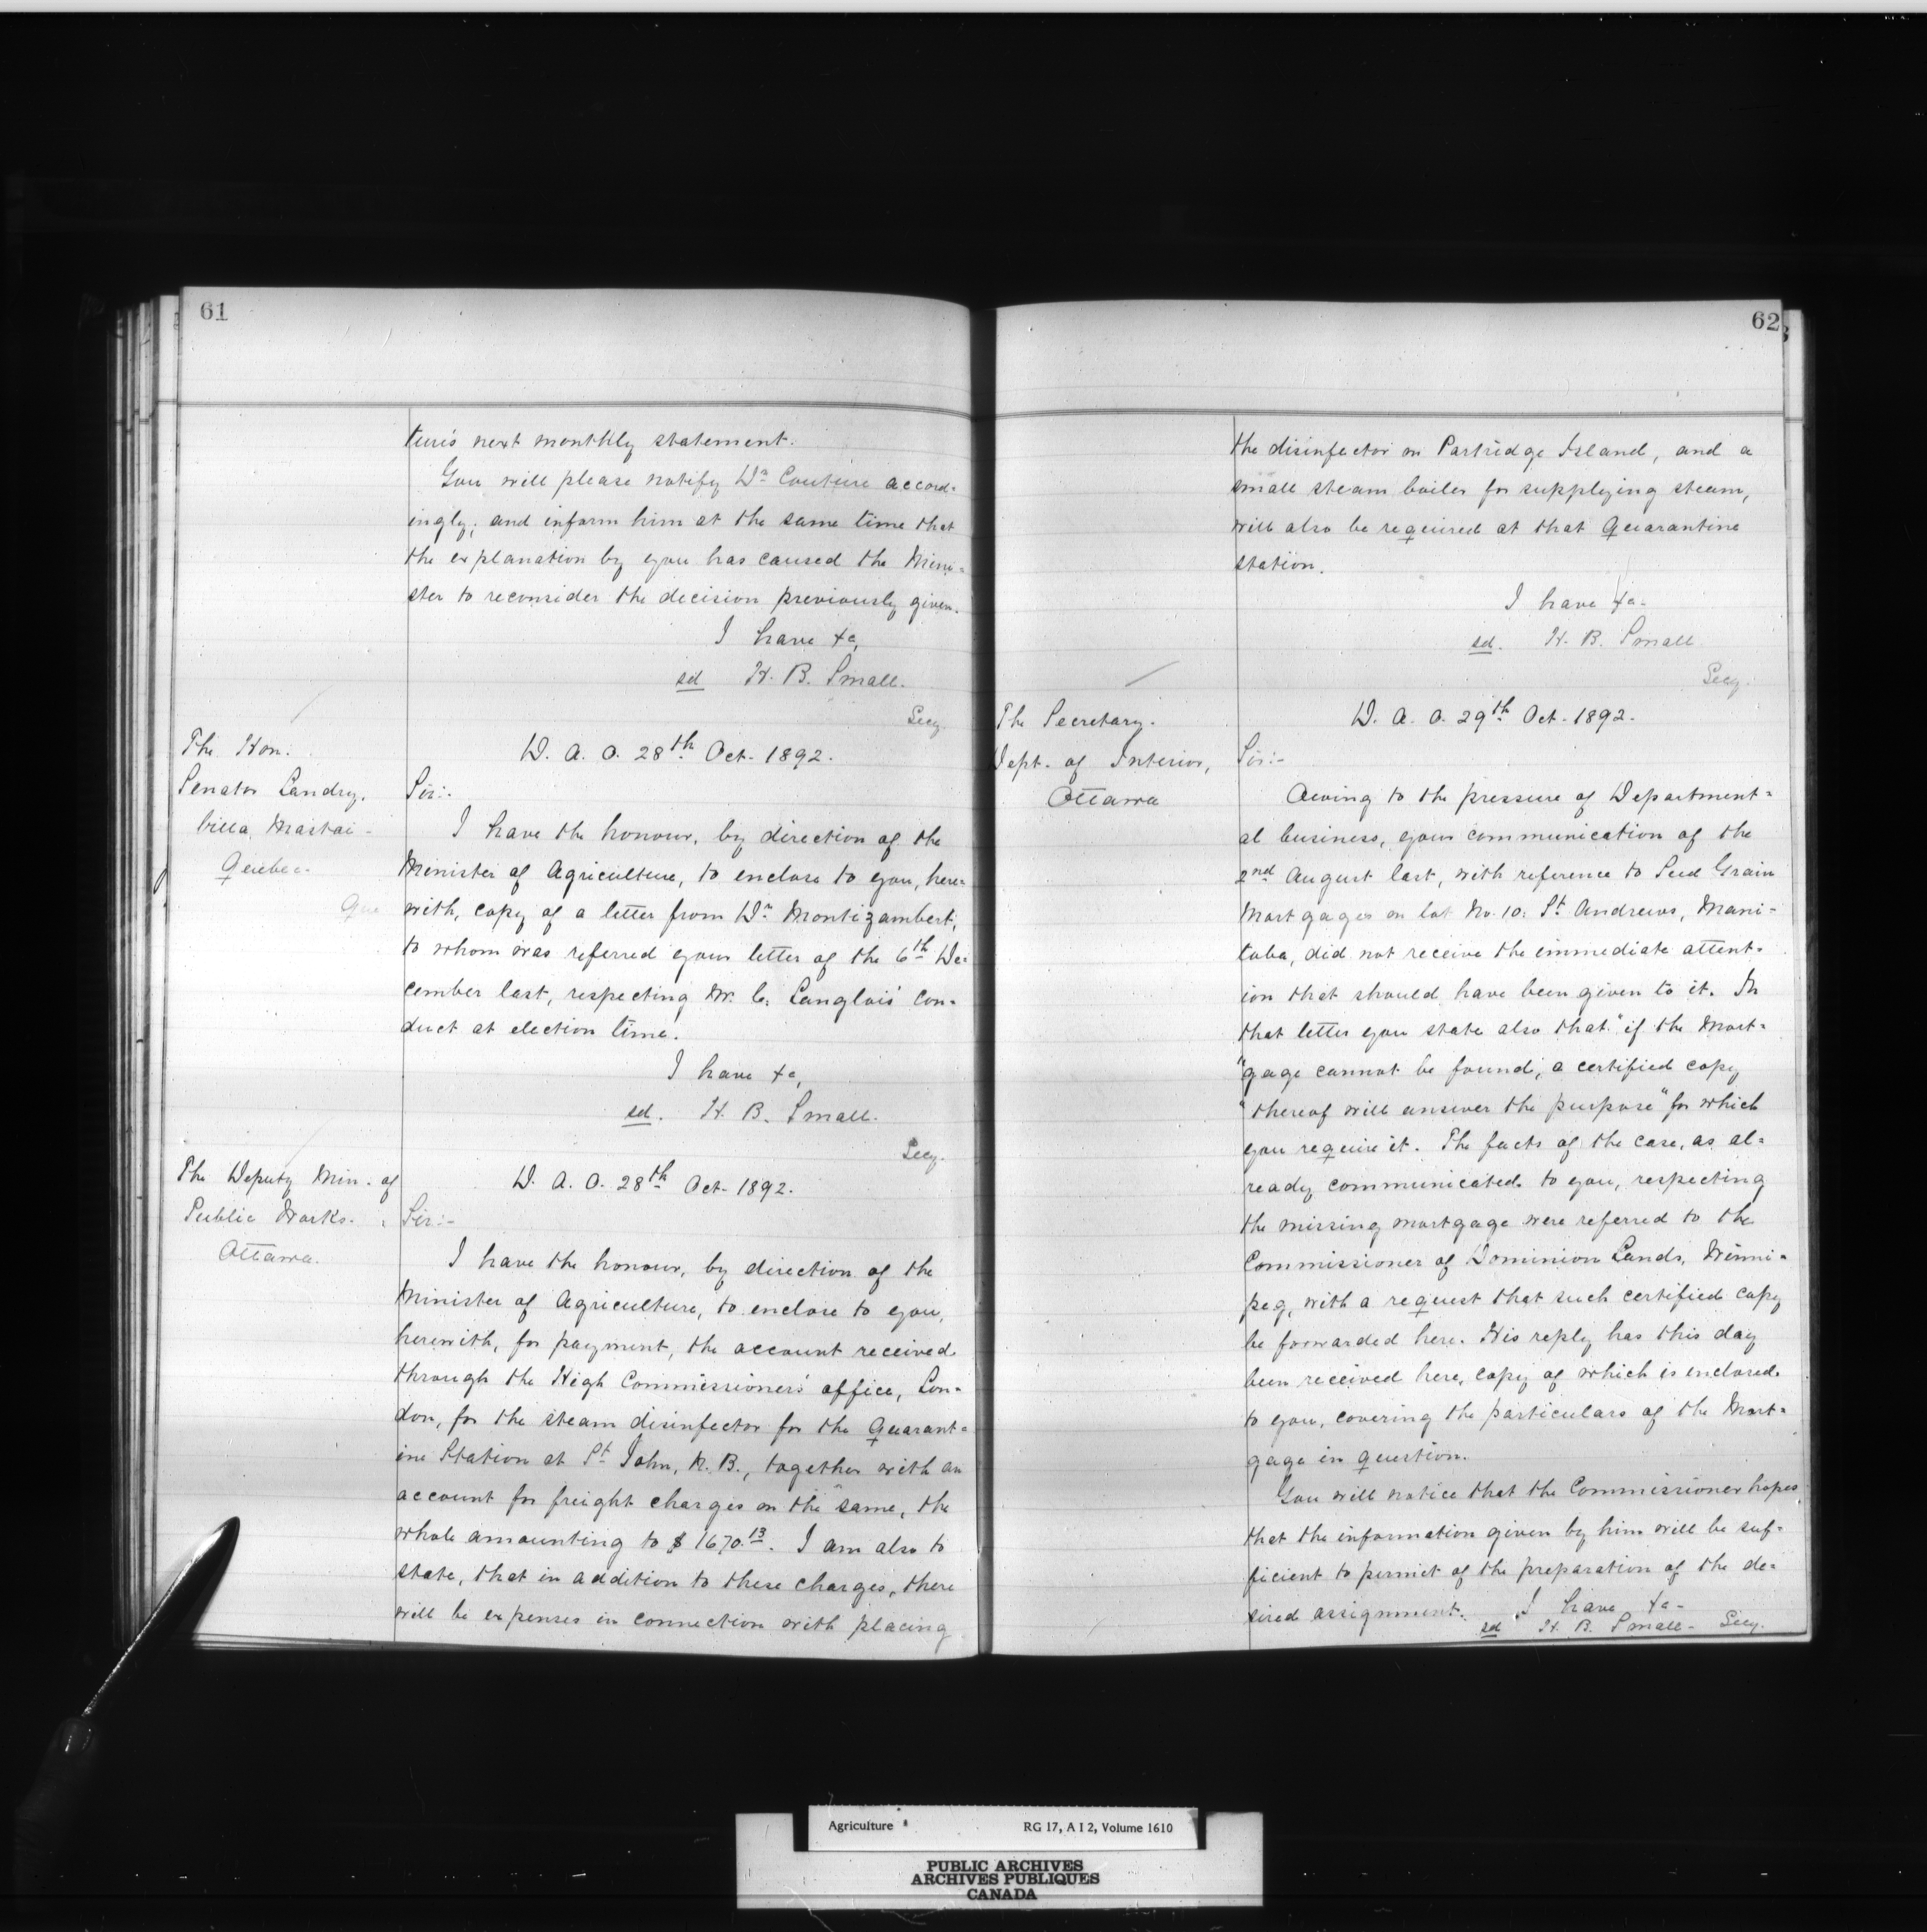 61
ture's next monthly statement.
You will please notify Dr. Couture accord-
ingly, and inform him at the same time that
the explanation by you has caused the Mini-
ster to reconsider the decision previously given.
I have &c,
sd H. B. Small.
Secy.
The Hon.
Senator Landry,
Villa Mastai-
Quebec.
Que
D. A. O. 28th Oct. 1892.
Sir:-
I have the honour, by direction of the
Minister of Agriculture, to enclose to you, here-
with, copy of a letter from Dr. Montizambert,
to whom was referred your letter of the 6th De-
cember last, respecting Mr. C. Langlois' con-
duct at election time.
I have &c,
sd. H. B. Small.
Secy.
The Deputy Min. of
Public Works.
Ottawa.
D. A. O. 28th Oct. 1892.
Sir:-
I have the honour, by direction of the
Minister of Agriculture, to enclose to you,
herewith, for payment, the account received
through the High Commissioner's office, Lon-
don, for the steam disinfector for the Quarant-
ine Station at St. John, N. B., together with an
account for freight charges on the same, the
whole amounting to $1670.13. I am also to
state, that in addition to these charges, there
will be expenses in connection with placing
62
the disinfector on Partridge Island, and a
small steam boiler for supplying steam,
will also be required at that Quarantine
station.
I have &c-
sd. H. B. Small
Secy.
The Secretary.
Dept. of Interior,
Ottawa
D. A. O. 29th Oct. 1892.
Sir:-
Owing to the pressure of Department-
al business, your communication of the
2nd August last, with reference to Seed Grain
Mortgages on lot No. 10: St. Andrews, Mani-
toba, did not receive the immediate attent-
ion that should have been given to it. In
that letter you state also that "if the Mort-
"gage cannot be found, a certified copy
"thereof will answer the purpose" for which
you require it. The facts of the case, as al-
ready communicated to you, respecting
the missing mortgage were referred to the
Commissioner of Dominion Lands, Winni-
peg, with a request that such certified copy
be forwarded here. His reply has this day
been received here, copy of which is enclosed
to you, covering the particulars of the Mort-
gage in question.
You will notice that the Commissioner hopes
that the information given by him will be suf-
ficient to permit of the preparation of the de-
sired assignment. I have &c-
sd H. B. Small- Secy.
Agriculture RG 17, A I 2, Volume 1610
PUBLIC ARCHIVES
ARCHIVES PUBLIQUES
CANADA